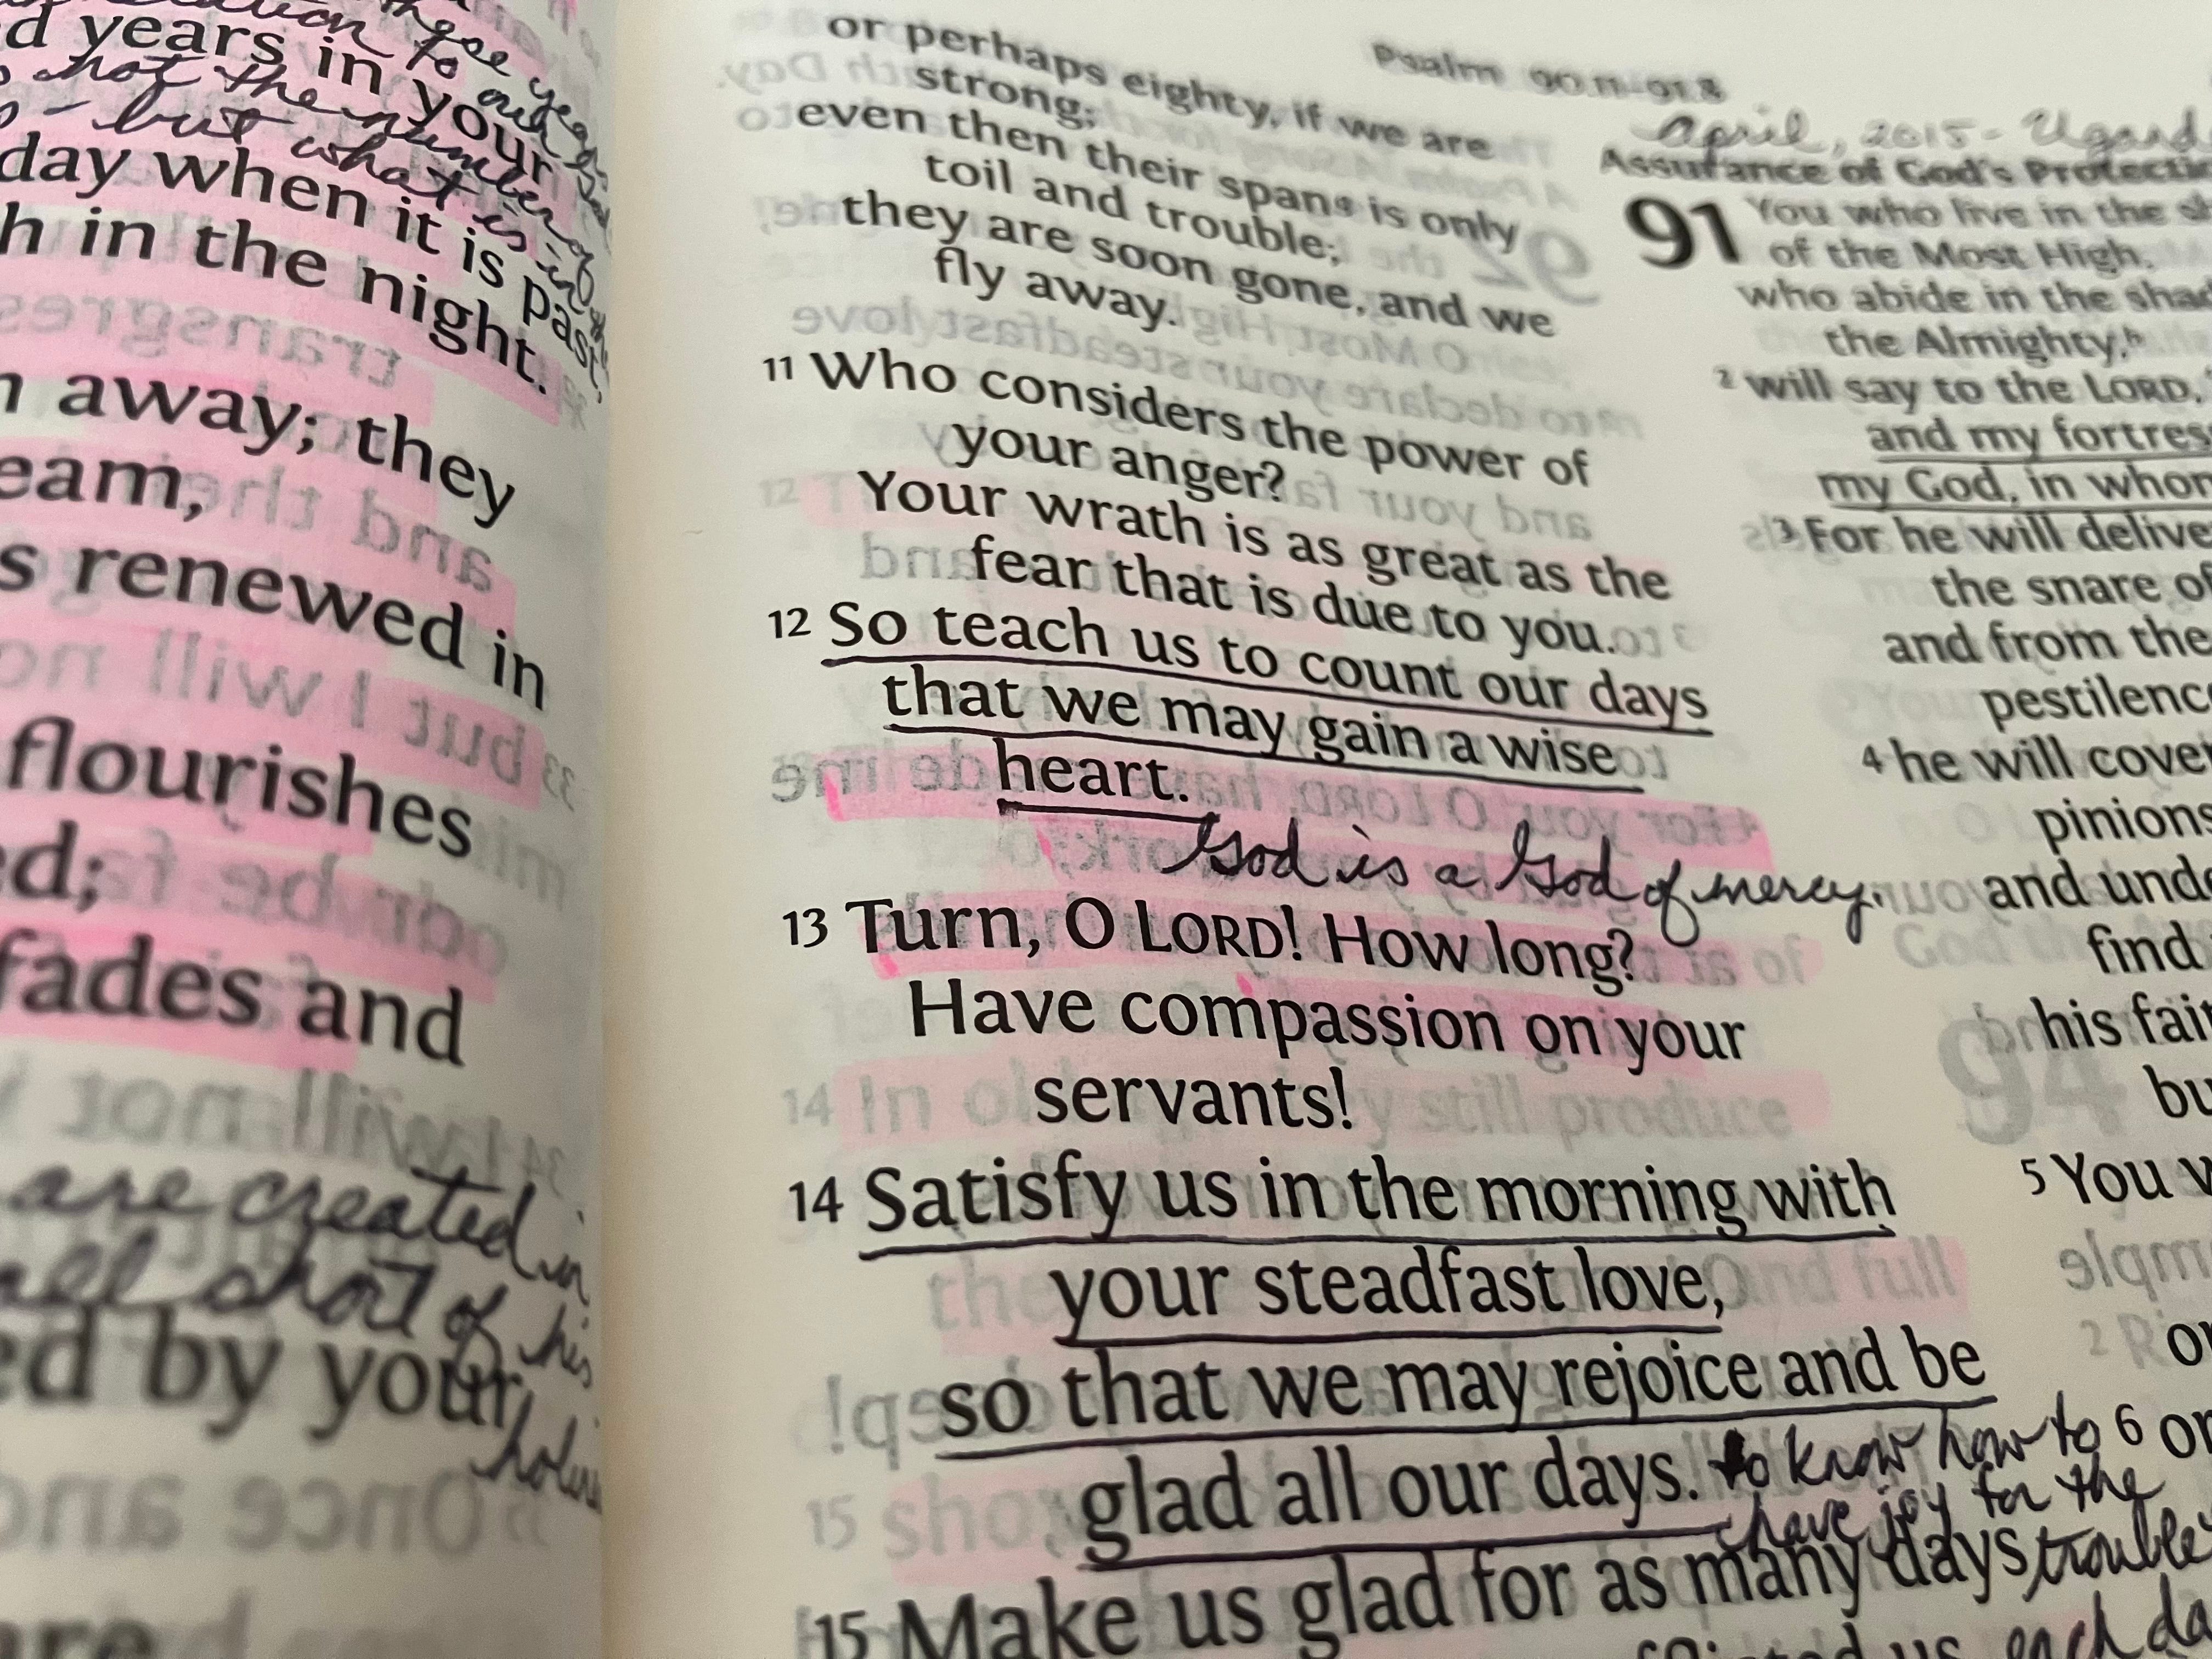 d years in your
not the number of
- but what is in
day when it is past,
h in the night.
away; they
eam,
s renewed in
flourishes
ed;
fades and
are created in
all short of his
ed by your
Psalm 90.11–91.8
or perhaps eighty, if we are
strong;
even then their span is only
toil and trouble;
they are soon gone, and we
fly away.
11 Who considers the power of
your anger?
Your wrath is as great as the
fear that is due to you.
12 So teach us to count our days
that we may gain a wise
heart.
God is a God of mercy.
13 Turn, O LORD! How long?
Have compassion on your
servants!
14 Satisfy us in the morning with
your steadfast love,
so that we may rejoice and be
glad all our days. to know how to
have joy for the
15 Make us glad for as many days
trouble
each da
April, 2015 - Ugand
Assurance of God's Protectio
91 You who live in the s
of the Most High,
who abide in the shad
the Almighty,
2 will say to the LORD,
and my fortress
my God, in whom
3 For he will delive
the snare of
and from the
pestilence
4 he will cover
pinions
and unde
find
his fai
bu
5 You
6 or